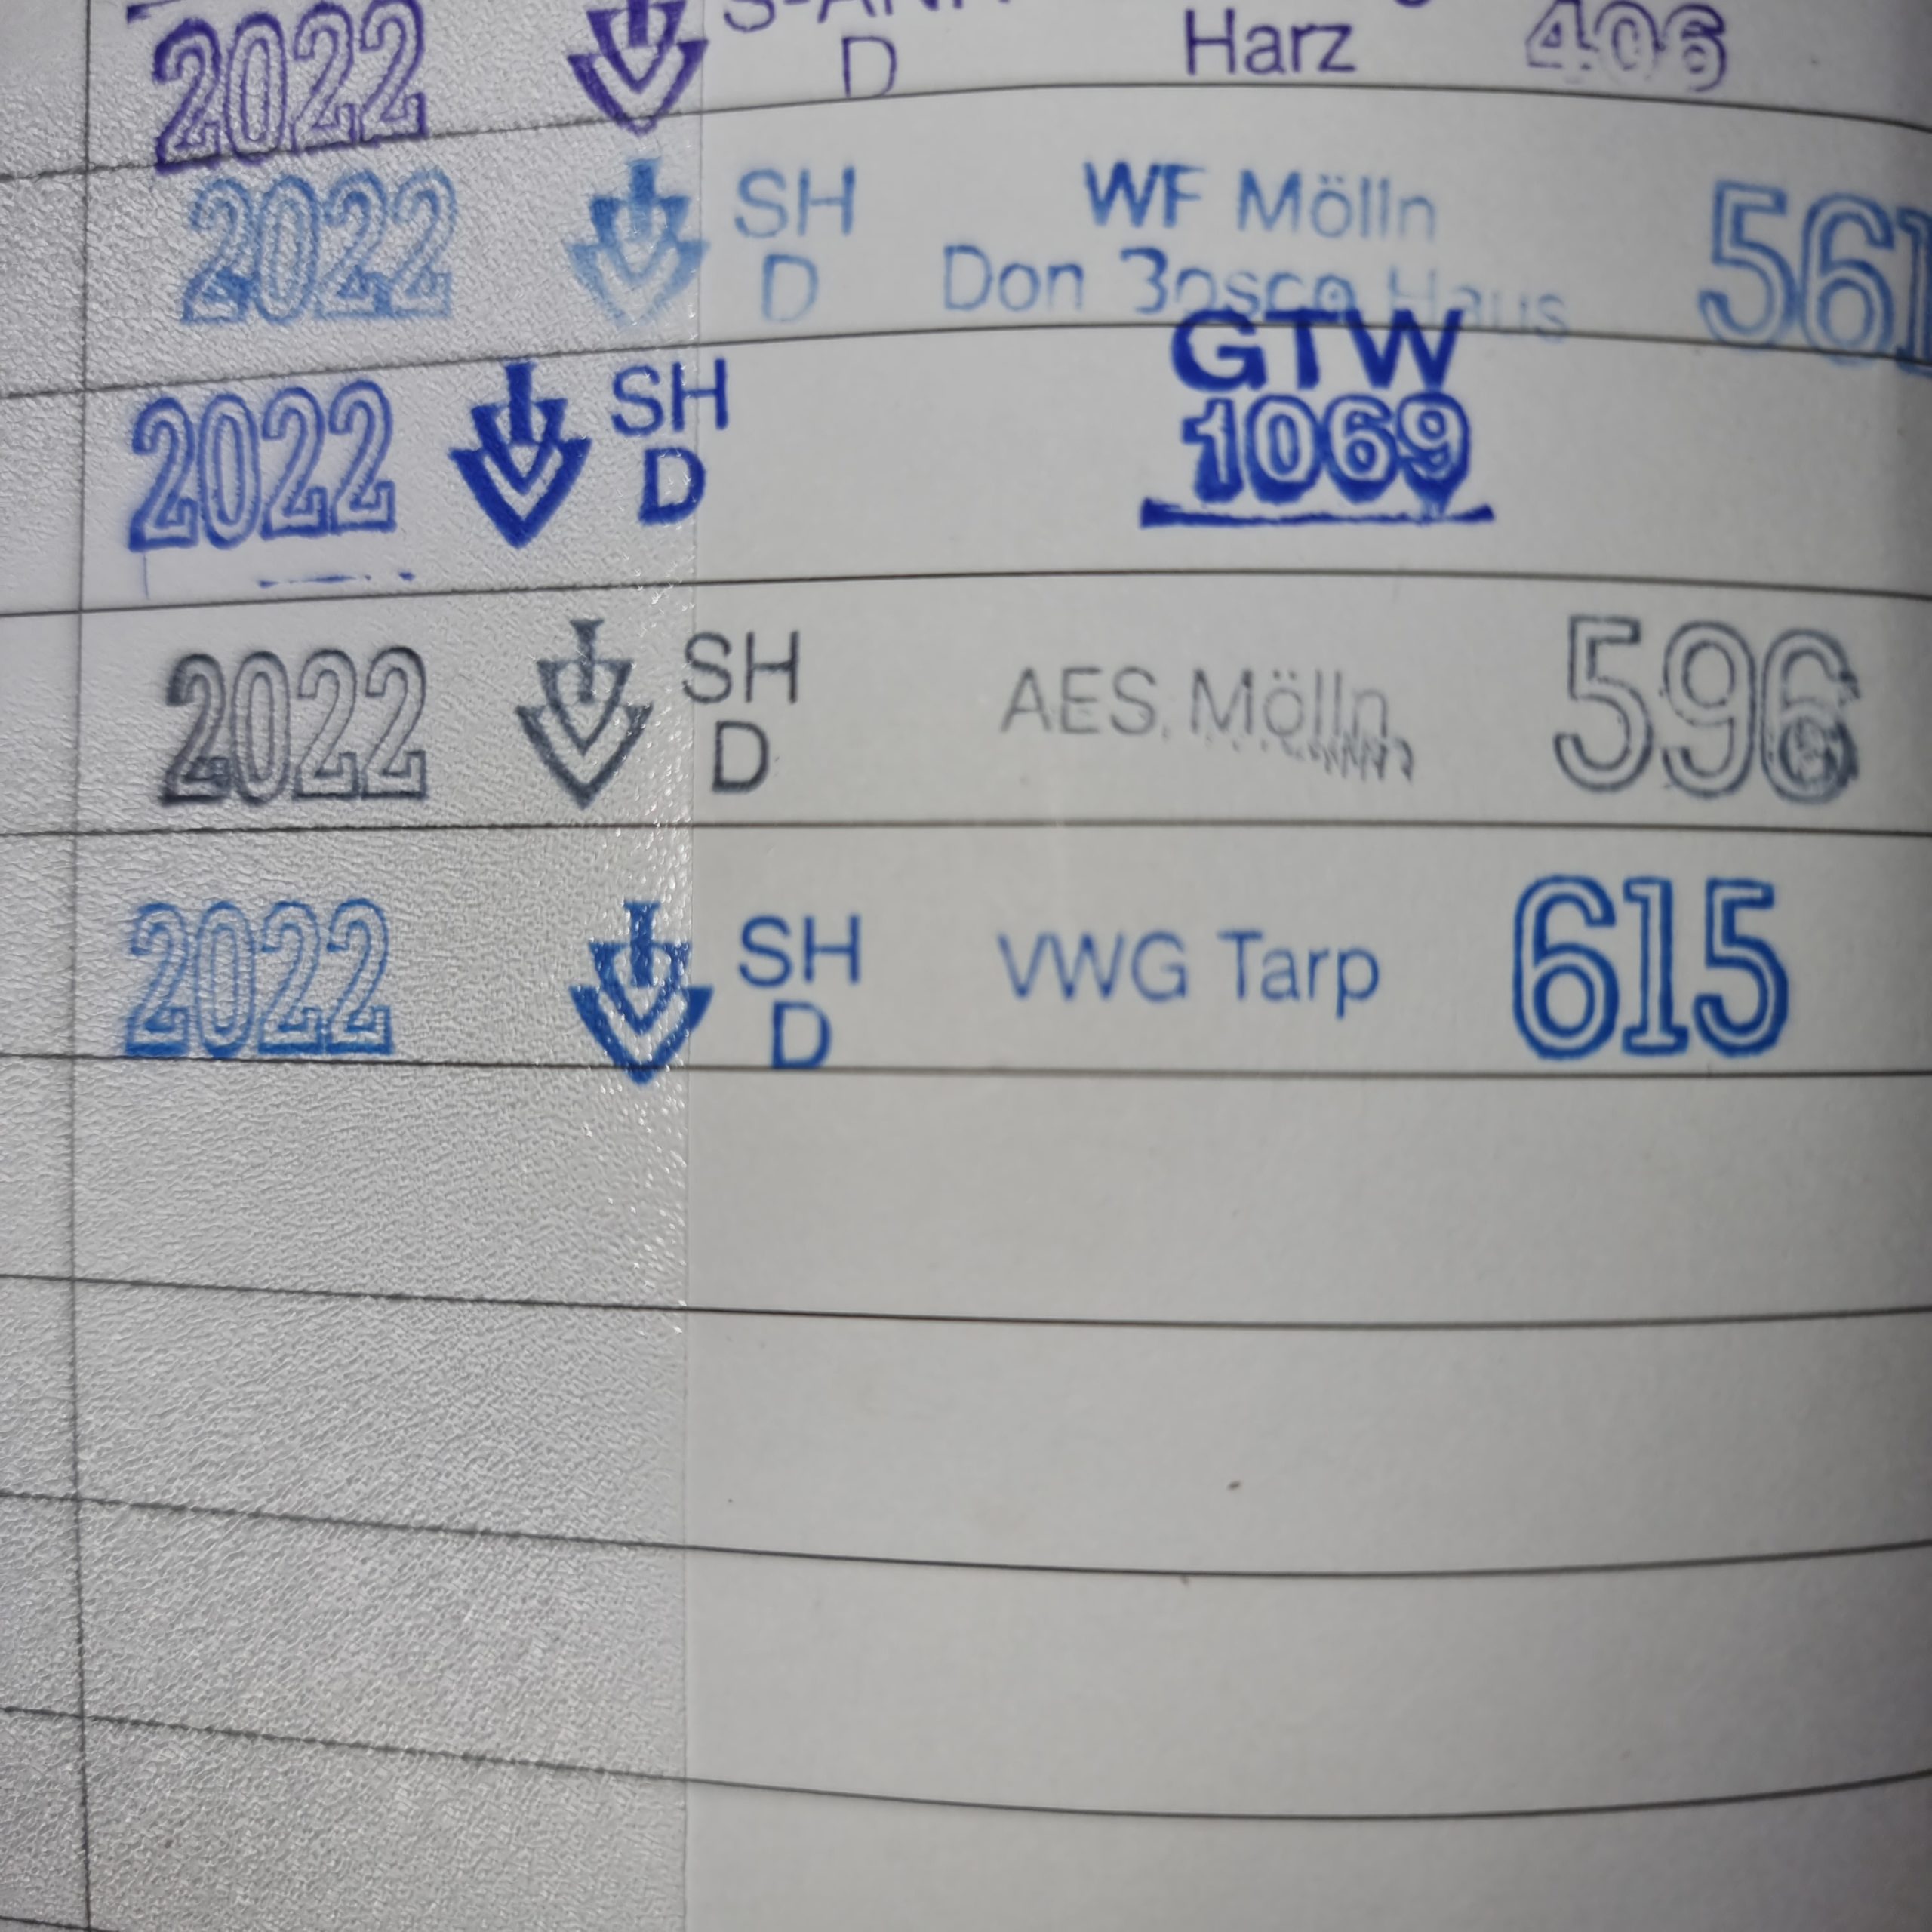 2022 D Harz 406
2022 SH WF Mölln 561
D Don Bosco Haus
2022 SH GTW
D 1069
2022 SH AES Mölln 596
D
2022 SH VWG Tarp 615
D